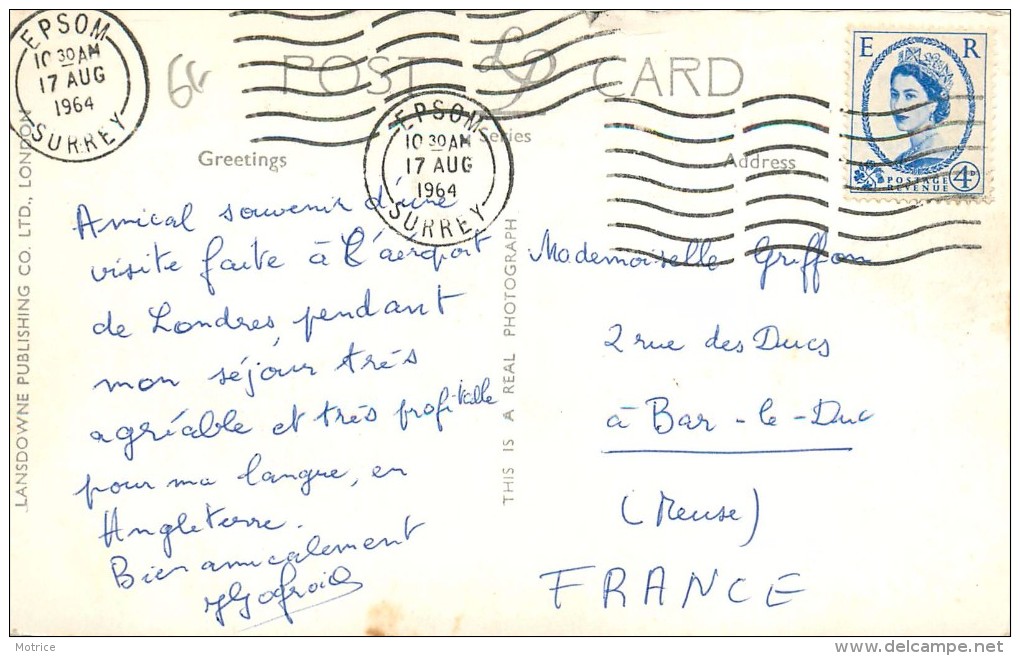 EPSOM
10 30 AM
17 AUG
1964
SURREY
POST CARD
EPSOM
10 30 AM
17 AUG
1964
SURREY
E R
POSTAGE
REVENUE
4D
Series
Greetings
Address
LANSDOWNE PUBLISHING CO. LTD., LONDON
THIS IS A REAL PHOTOGRAPH
Amical souvenir d'une
visite faite à l'aéroport
de Londres, pendant
mon séjour très
agréable et très profitable
pour ma langue, en
Angleterre.
Bien amicalement
Mademoiselle Griffon
2 rue des Ducs
à Bar-le-Duc
(Meuse)
FRANCE
Motrice
delcampe.net